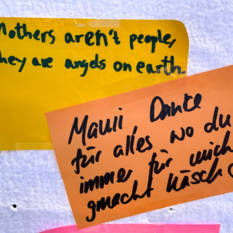 Mothers aren't people,
they are angels on earth.
Mami Danke
für alles wo du
immer für mich
gmacht häsch